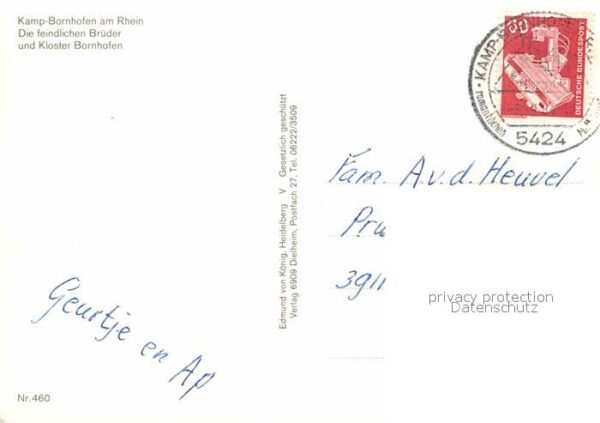 Kamp-Bornhofen am Rhein
Die feindlichen Brüder
und Kloster Bornhofen
Edmund von König, Heidelberg V Gesetzlich geschützt
Verlag 6909 Dielheim, Postfach 27, Tel. 06222/3509
60
DEUTSCHE BUNDESPOST
KAMP-
romantischen
5424
Fam. A.v.d. Heuvel
Pru
3911
privacy protection
Datenschutz
Geurtje en Ap
Nr. 460